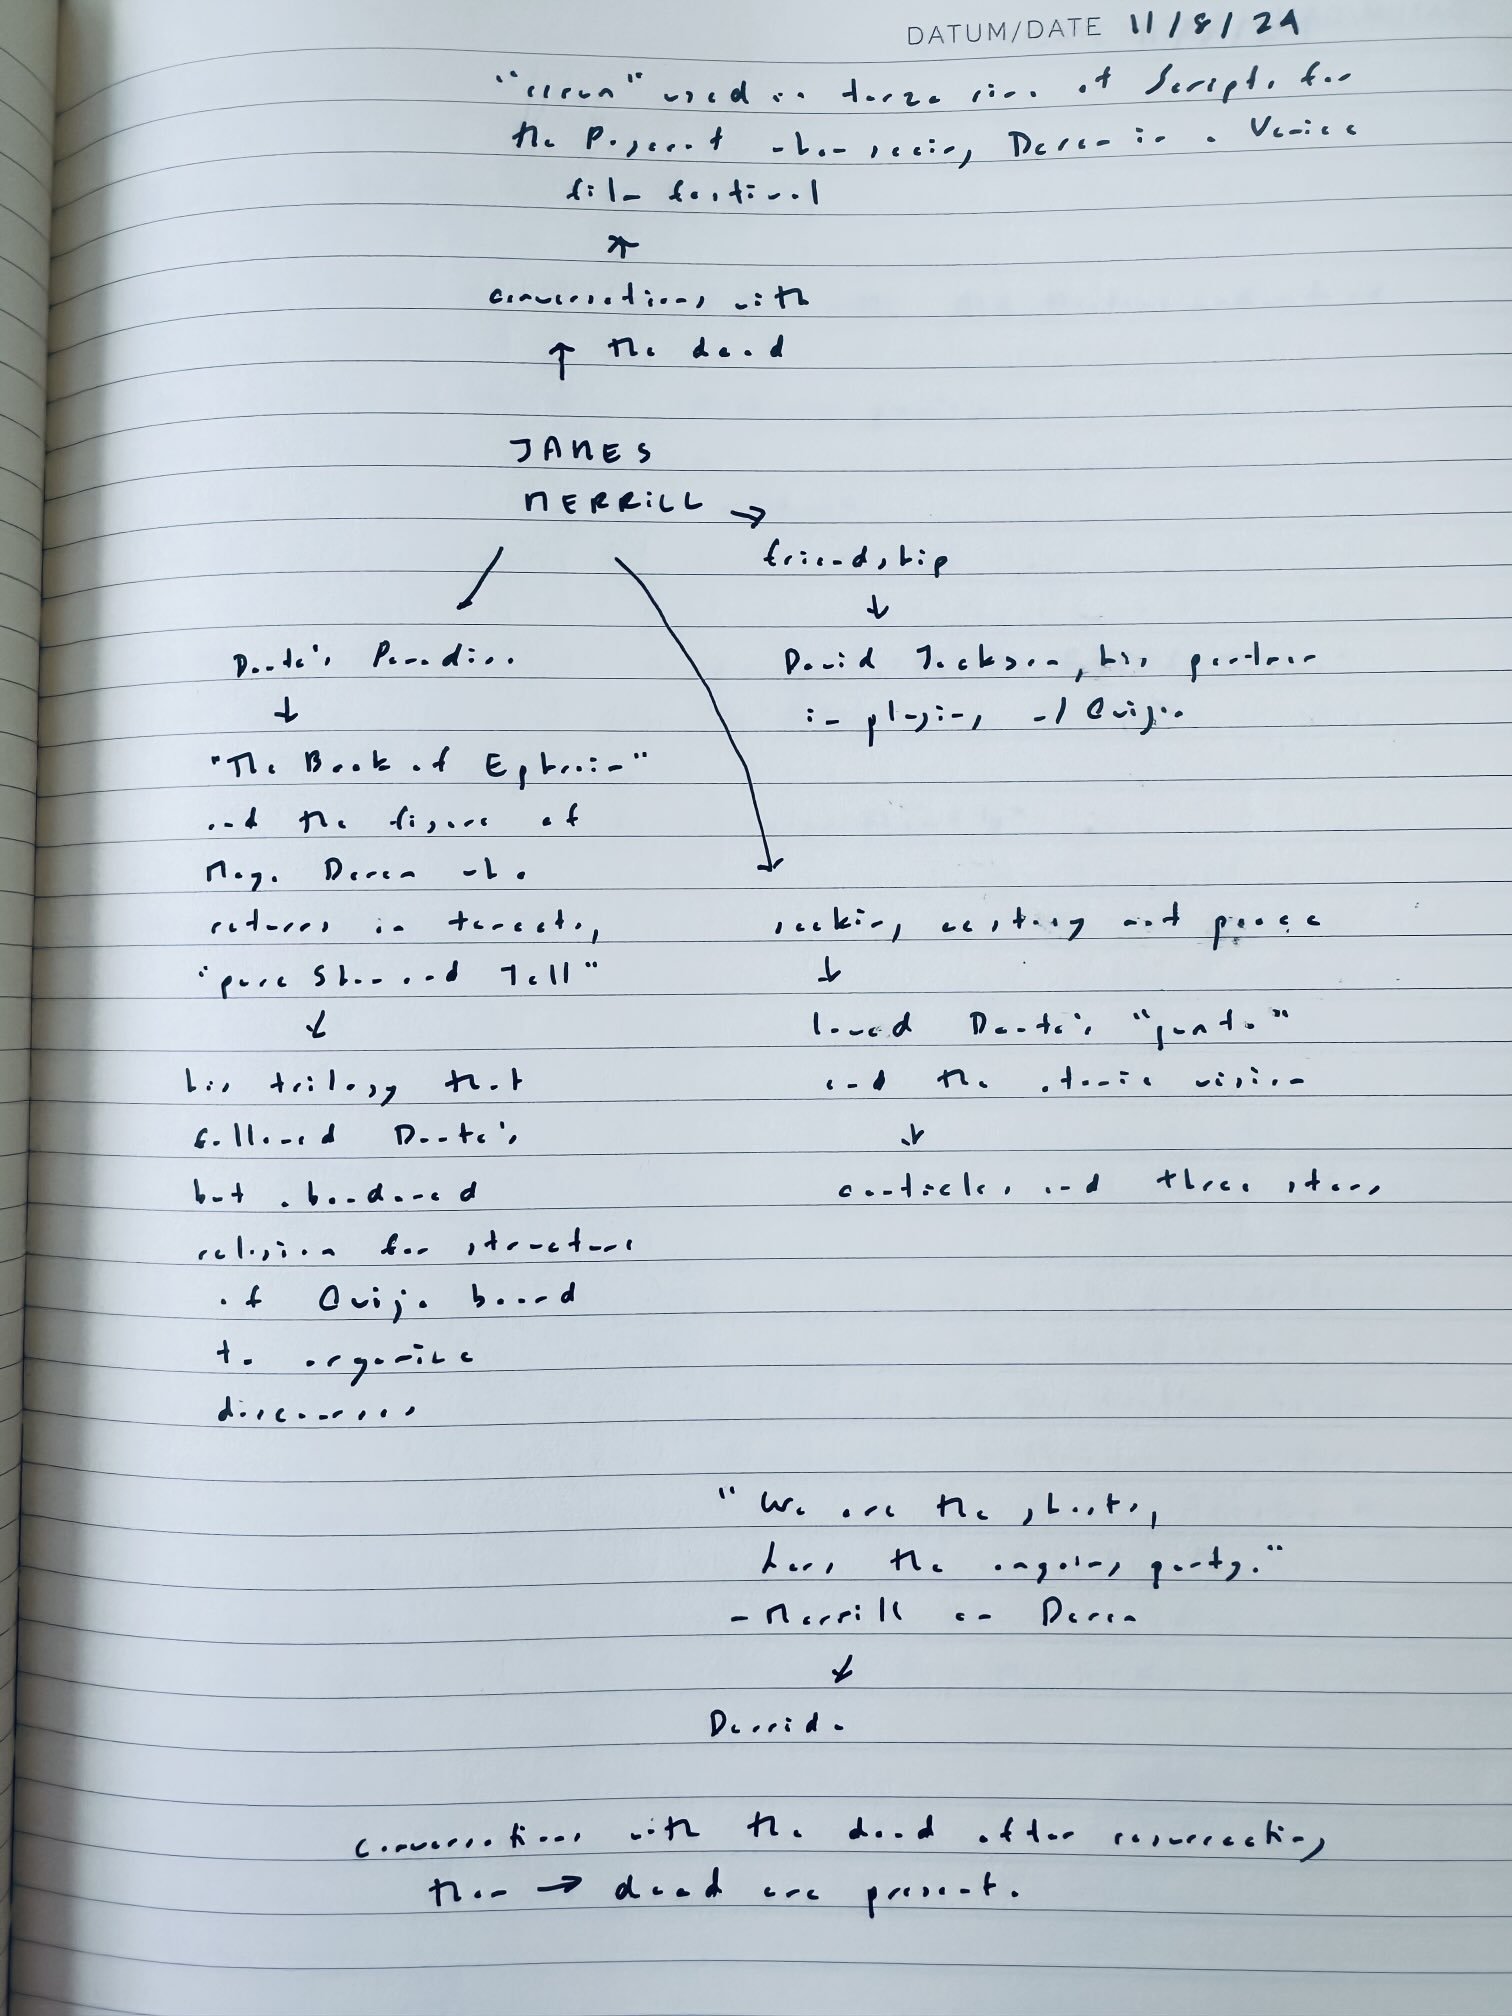 DATUM/DATE 11/8/24
used in terza rima of Scripts for
the Pageant when seeing Deren in a Venice
film festival
↑
conversations with
↑ the dead
JAMES
MERRILL →
friendship
↓
David Jackson, his partner
in playing w/ Ouija
Dante's Paradiso
↓
"The Book of Ephraim"
and the figure of
Maya Deren who
returns in tercets,
"pure Shan and Tell"
↓
his trilogy that
followed Dante's
but abandoned
religion for structure
of Ouija board
to organize
discourses
seeking ecstasy and peace
↓
loved Dante's "punto"
and the atomic vision
↓
canticles and three stars
"We are the ghosts,
hers the ongoing party."
- Merrill on Deren
↓
Derrida
conversations with the dead after resurrecting
them → dead are present.